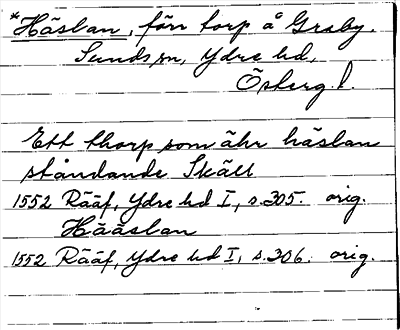 *Häslan, förr torp å Graby.
Sunds sn, Ydre hd,
Österg. l.
Ett thorp som ähr häslan
ståndande Skäll
1552 Rääf, Ydre hd I, s. 305. orig.
Hääslan
1552 Rääf, Ydre hd I, s. 306. orig.